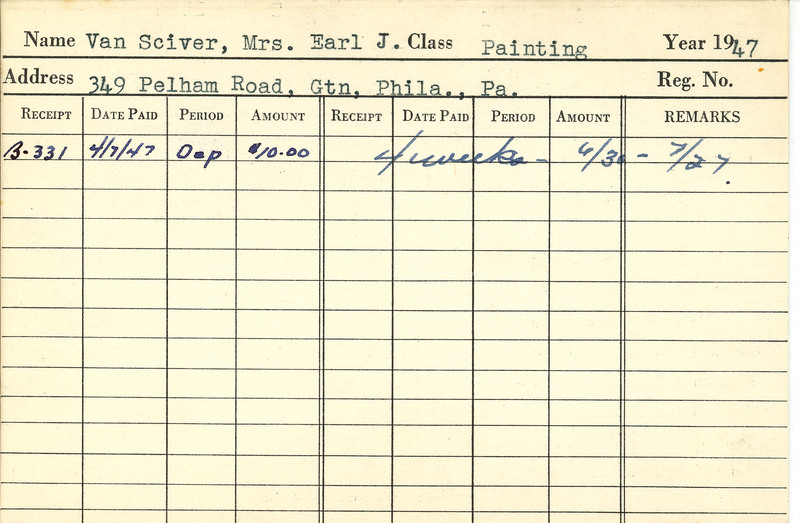 Name Van Sciver, Mrs. Earl J. Class Painting Year 1947
Address 349 Pelham Road, Gtn, Phila., Pa. Reg. No.
RECEIPT DATE PAID PERIOD AMOUNT RECEIPT DATE PAID PERIOD AMOUNT REMARKS
B-331 4/7/47 Dep $10.00 4 weeks - 6/30 - 7/27